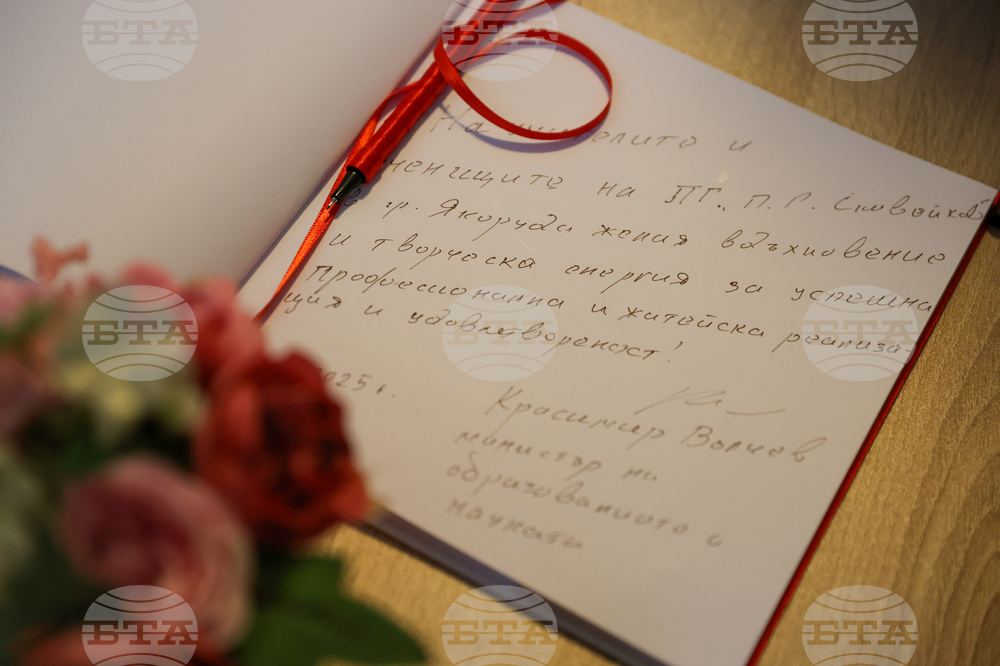 На и
ченищите на ПГ „П. Р. Славейков"
гр. Якоруда желая вдъхновение
и творческа енергия за успешна
професионална и житейска реализа-
ция и удовлетвореност!
2025 г.
Красимир Вълчев
министър на
образованието и
науката
БТА
БТА
БТА
БТА
БТА
БТА
БТА
БТА
БТА